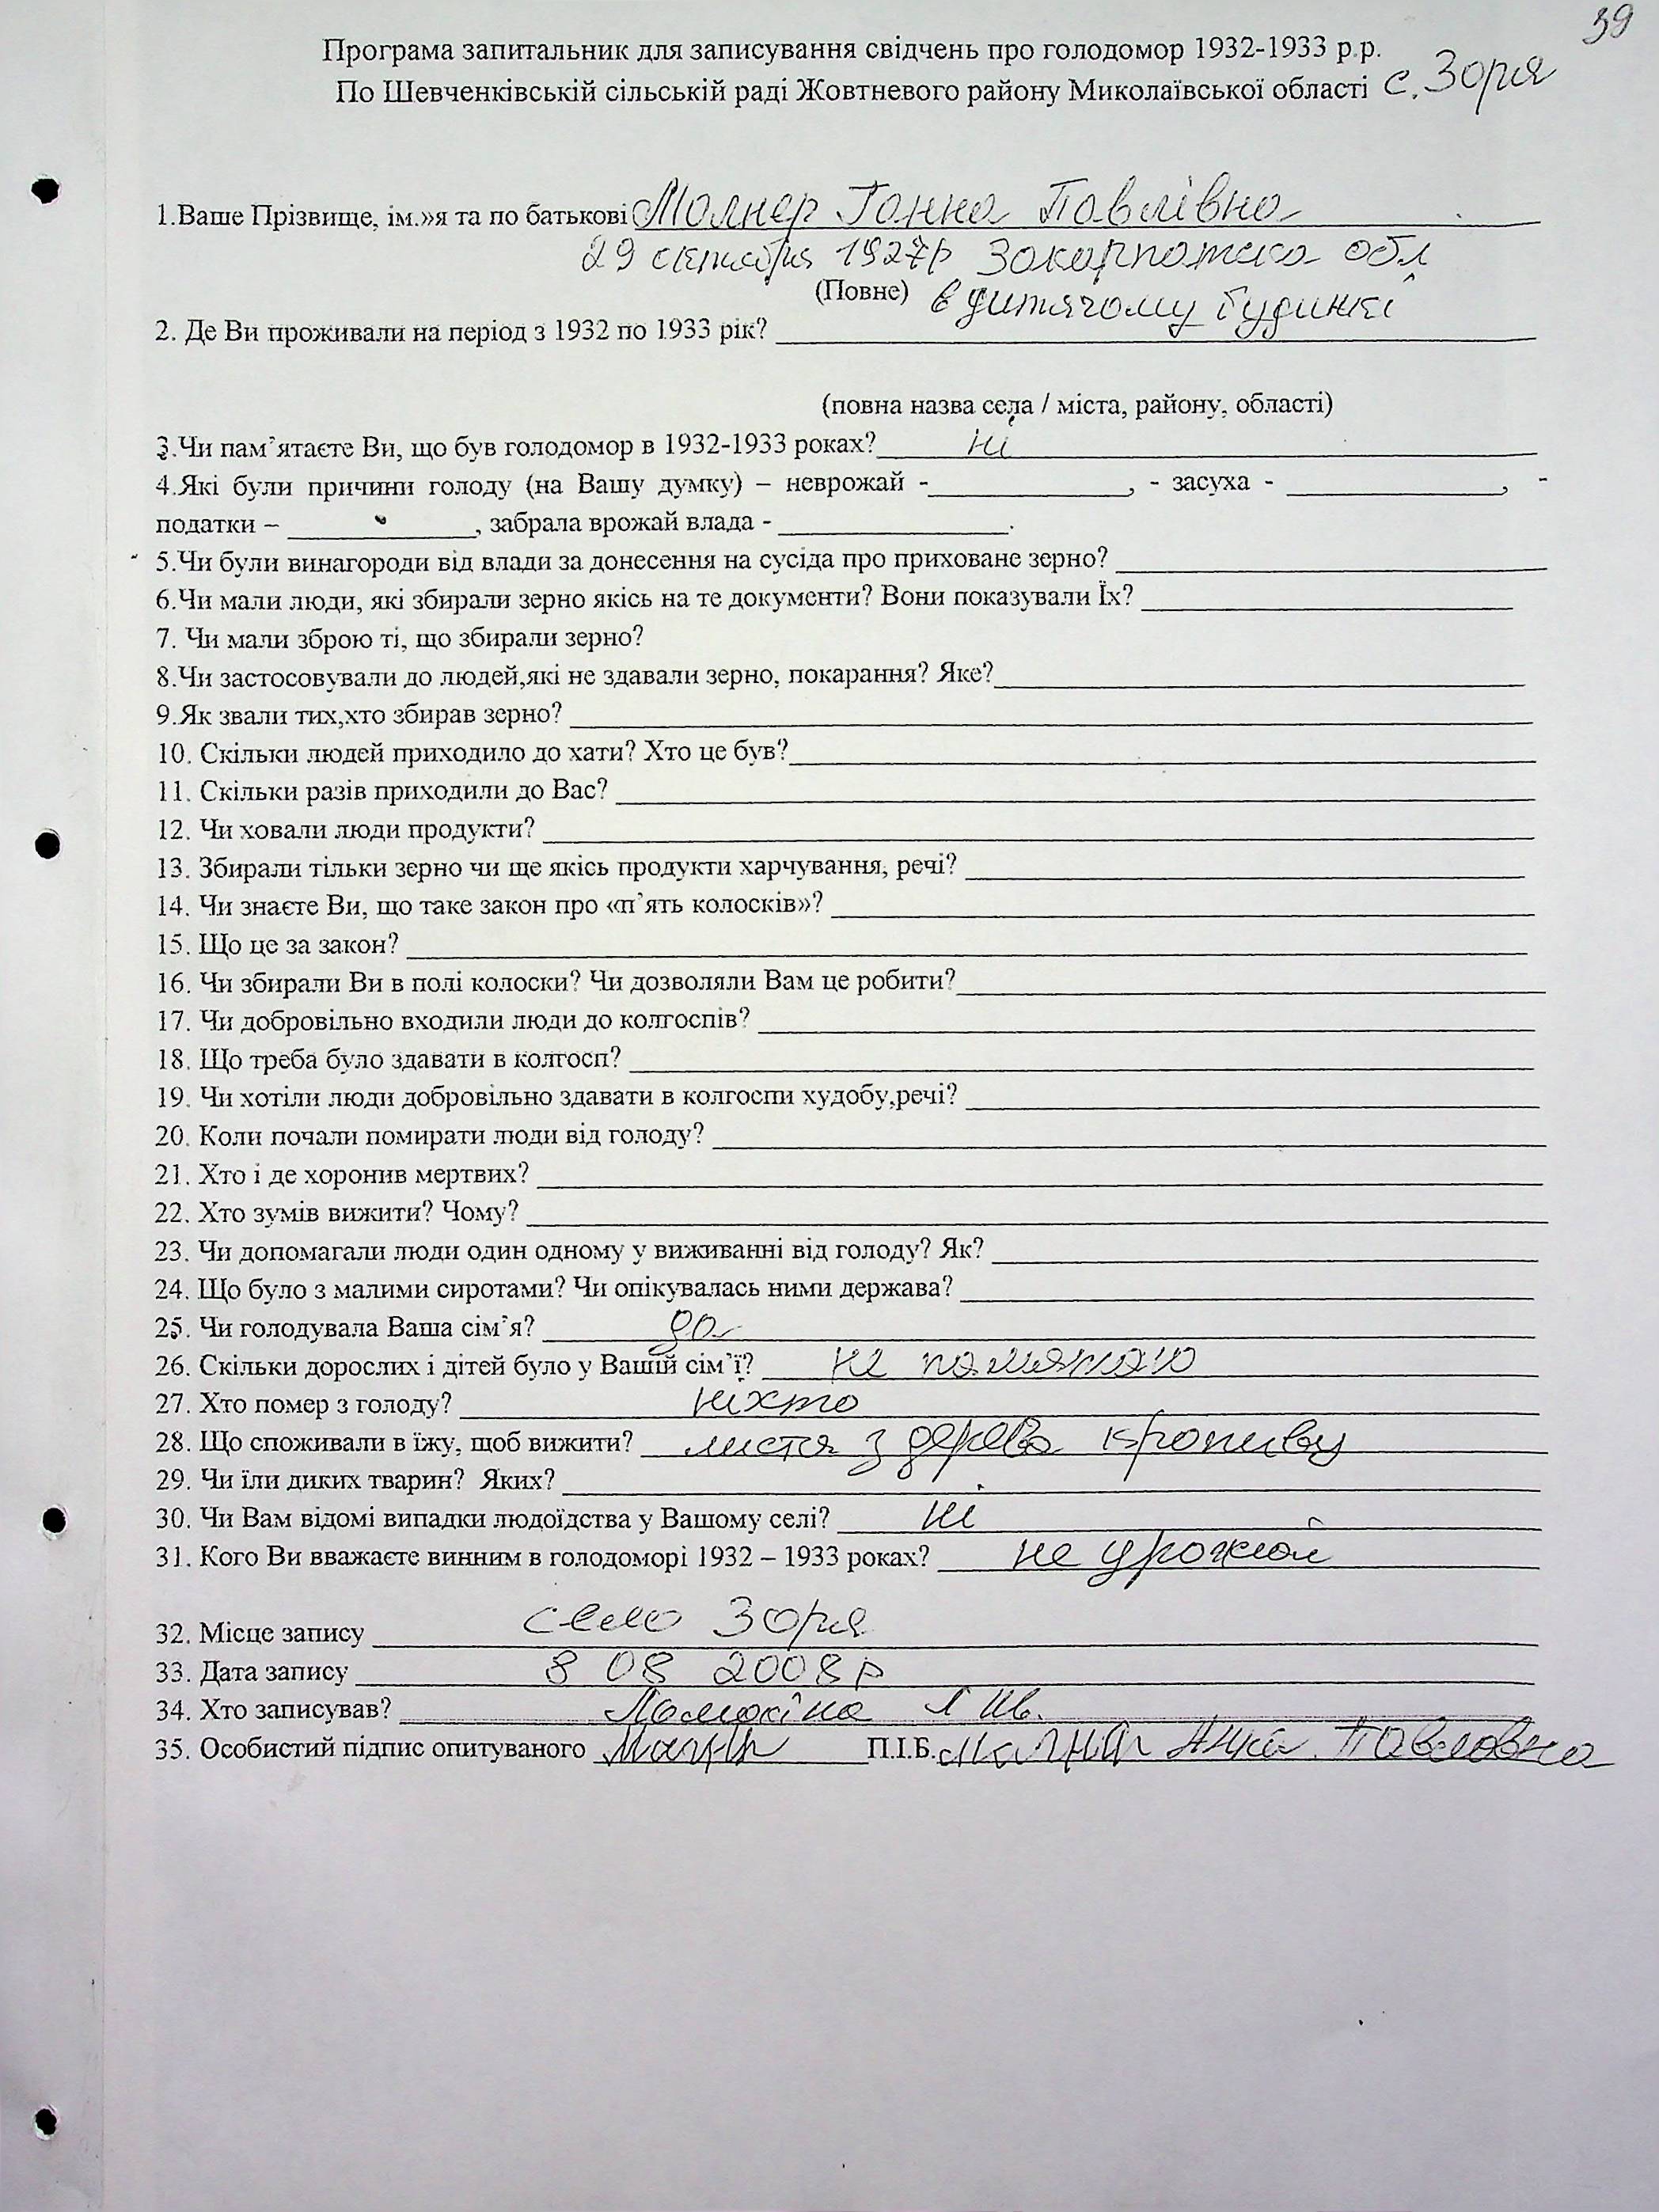 39
Програма запитальник для записування свідчень про голодомор 1932-1933 р.р.
По Шевченківській сільській раді Жовтневого району Миколаївської області с. Зоря
1.Ваше Прізвище, ім.»я та по батькові Молнер Ганна Павлівна
29 октября 1927р Закарпатска обл
(Повне) в дитячому будинкі
2. Де Ви проживали на період з 1932 по 1933 рік?
(повна назва села / міста, району, області)
3.Чи пам’ятаєте Ви, що був голодомор в 1932-1933 роках? ні
4.Які були причини голоду (на Вашу думку) – неврожай - , - засуха - , -
податки – , забрала врожай влада - .
5.Чи були винагороди від влади за донесення на сусіда про приховане зерно?
6.Чи мали люди, які збирали зерно якісь на те документи? Вони показували Їх?
7. Чи мали зброю ті, що збирали зерно?
8.Чи застосовували до людей,які не здавали зерно, покарання? Яке?
9.Як звали тих,хто збирав зерно?
10. Скільки людей приходило до хати? Хто це був?
11. Скільки разів приходили до Вас?
12. Чи ховали люди продукти?
13. Збирали тільки зерно чи ще якісь продукти харчування, речі?
14. Чи знаєте Ви, що таке закон про «п’ять колосків»?
15. Що це за закон?
16. Чи збирали Ви в полі колоски? Чи дозволяли Вам це робити?
17. Чи добровільно входили люди до колгоспів?
18. Що треба було здавати в колгосп?
19. Чи хотіли люди добровільно здавати в колгоспи худобу,речі?
20. Коли почали помирати люди від голоду?
21. Хто і де хоронив мертвих?
22. Хто зумів вижити? Чому?
23. Чи допомагали люди один одному у виживанні від голоду? Як?
24. Що було з малими сиротами? Чи опікувалась ними держава?
25. Чи голодувала Ваша сім’я? да
26. Скільки дорослих і дітей було у Вашій сім’ї? не памятаю
27. Хто помер з голоду? ніхто
28. Що споживали в їжу, щоб вижити? листя з дерева кропиву
29. Чи їли диких тварин? Яких?
30. Чи Вам відомі випадки людоїдства у Вашому селі? ні
31. Кого Ви вважаєте винним в голодоморі 1932 – 1933 роках? не урожай
32. Місце запису село Зоря
33. Дата запису 8 08 2008р
34. Хто записував?
35. Особистий підпис опитуваного П.І.Б. Павловна